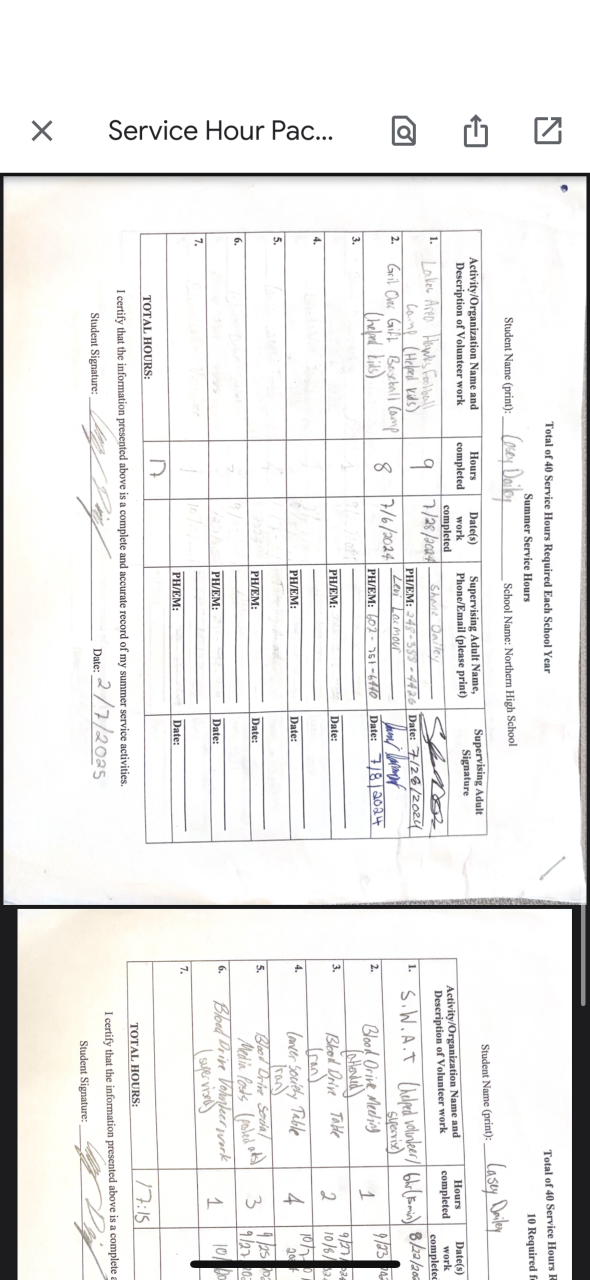 Service Hour Pac...
Total of 40 Service Hours Required Each School Year
Summer Service Hours
Student Name (print): Casey Dailey School Name: Northern High School
Activity/Organization Name and Description of Volunteer work
Hours completed
Date(s) work completed
Supervising Adult Name, Phone/Email (please print)
Supervising Adult Signature
1. Lakes Area Hawks Football Camp (Helped kids)
9
7/28/2024
Dailey
PH/EM: 248-
Date: 7/28/2024
2. Gril One Gift Baseball Camp (helped kids)
8
7/6/2024
Levi Larmour
PH/EM: 602-751-6440
Date: 7/8/2024
3.
PH/EM:
Date:
4.
PH/EM:
Date:
5.
PH/EM:
Date:
6.
PH/EM:
Date:
7.
PH/EM:
Date:
TOTAL HOURS: 17
I certify that the information presented above is a complete and accurate record of my summer service activities.
Student Signature: Date: 2/7/2025
Total of 40 Service Hours R
10 Required f
Student Name (print): Casey Dailey
Activity/Organization Name and Description of Volunteer work
Hours completed
Date(s) work complete
1. S.W.A.T (helped volunteer/ supervise)
6hr(15min)
8/22/20
2. Blood Drive Meeting (Attended)
1
9/23
3. Blood Drive Table (ran)
2
9/27/
10/6/
4. Lancer Society Table (ran)
4
10/7
5. Blood Drive Social Media Posts (posted ads)
3
9/25
9/27
6. Blood Drive Volunteer work (supervised)
1
10/
7.
TOTAL HOURS: 17:15
I certify that the information presented above is a complete a
Student Signature: